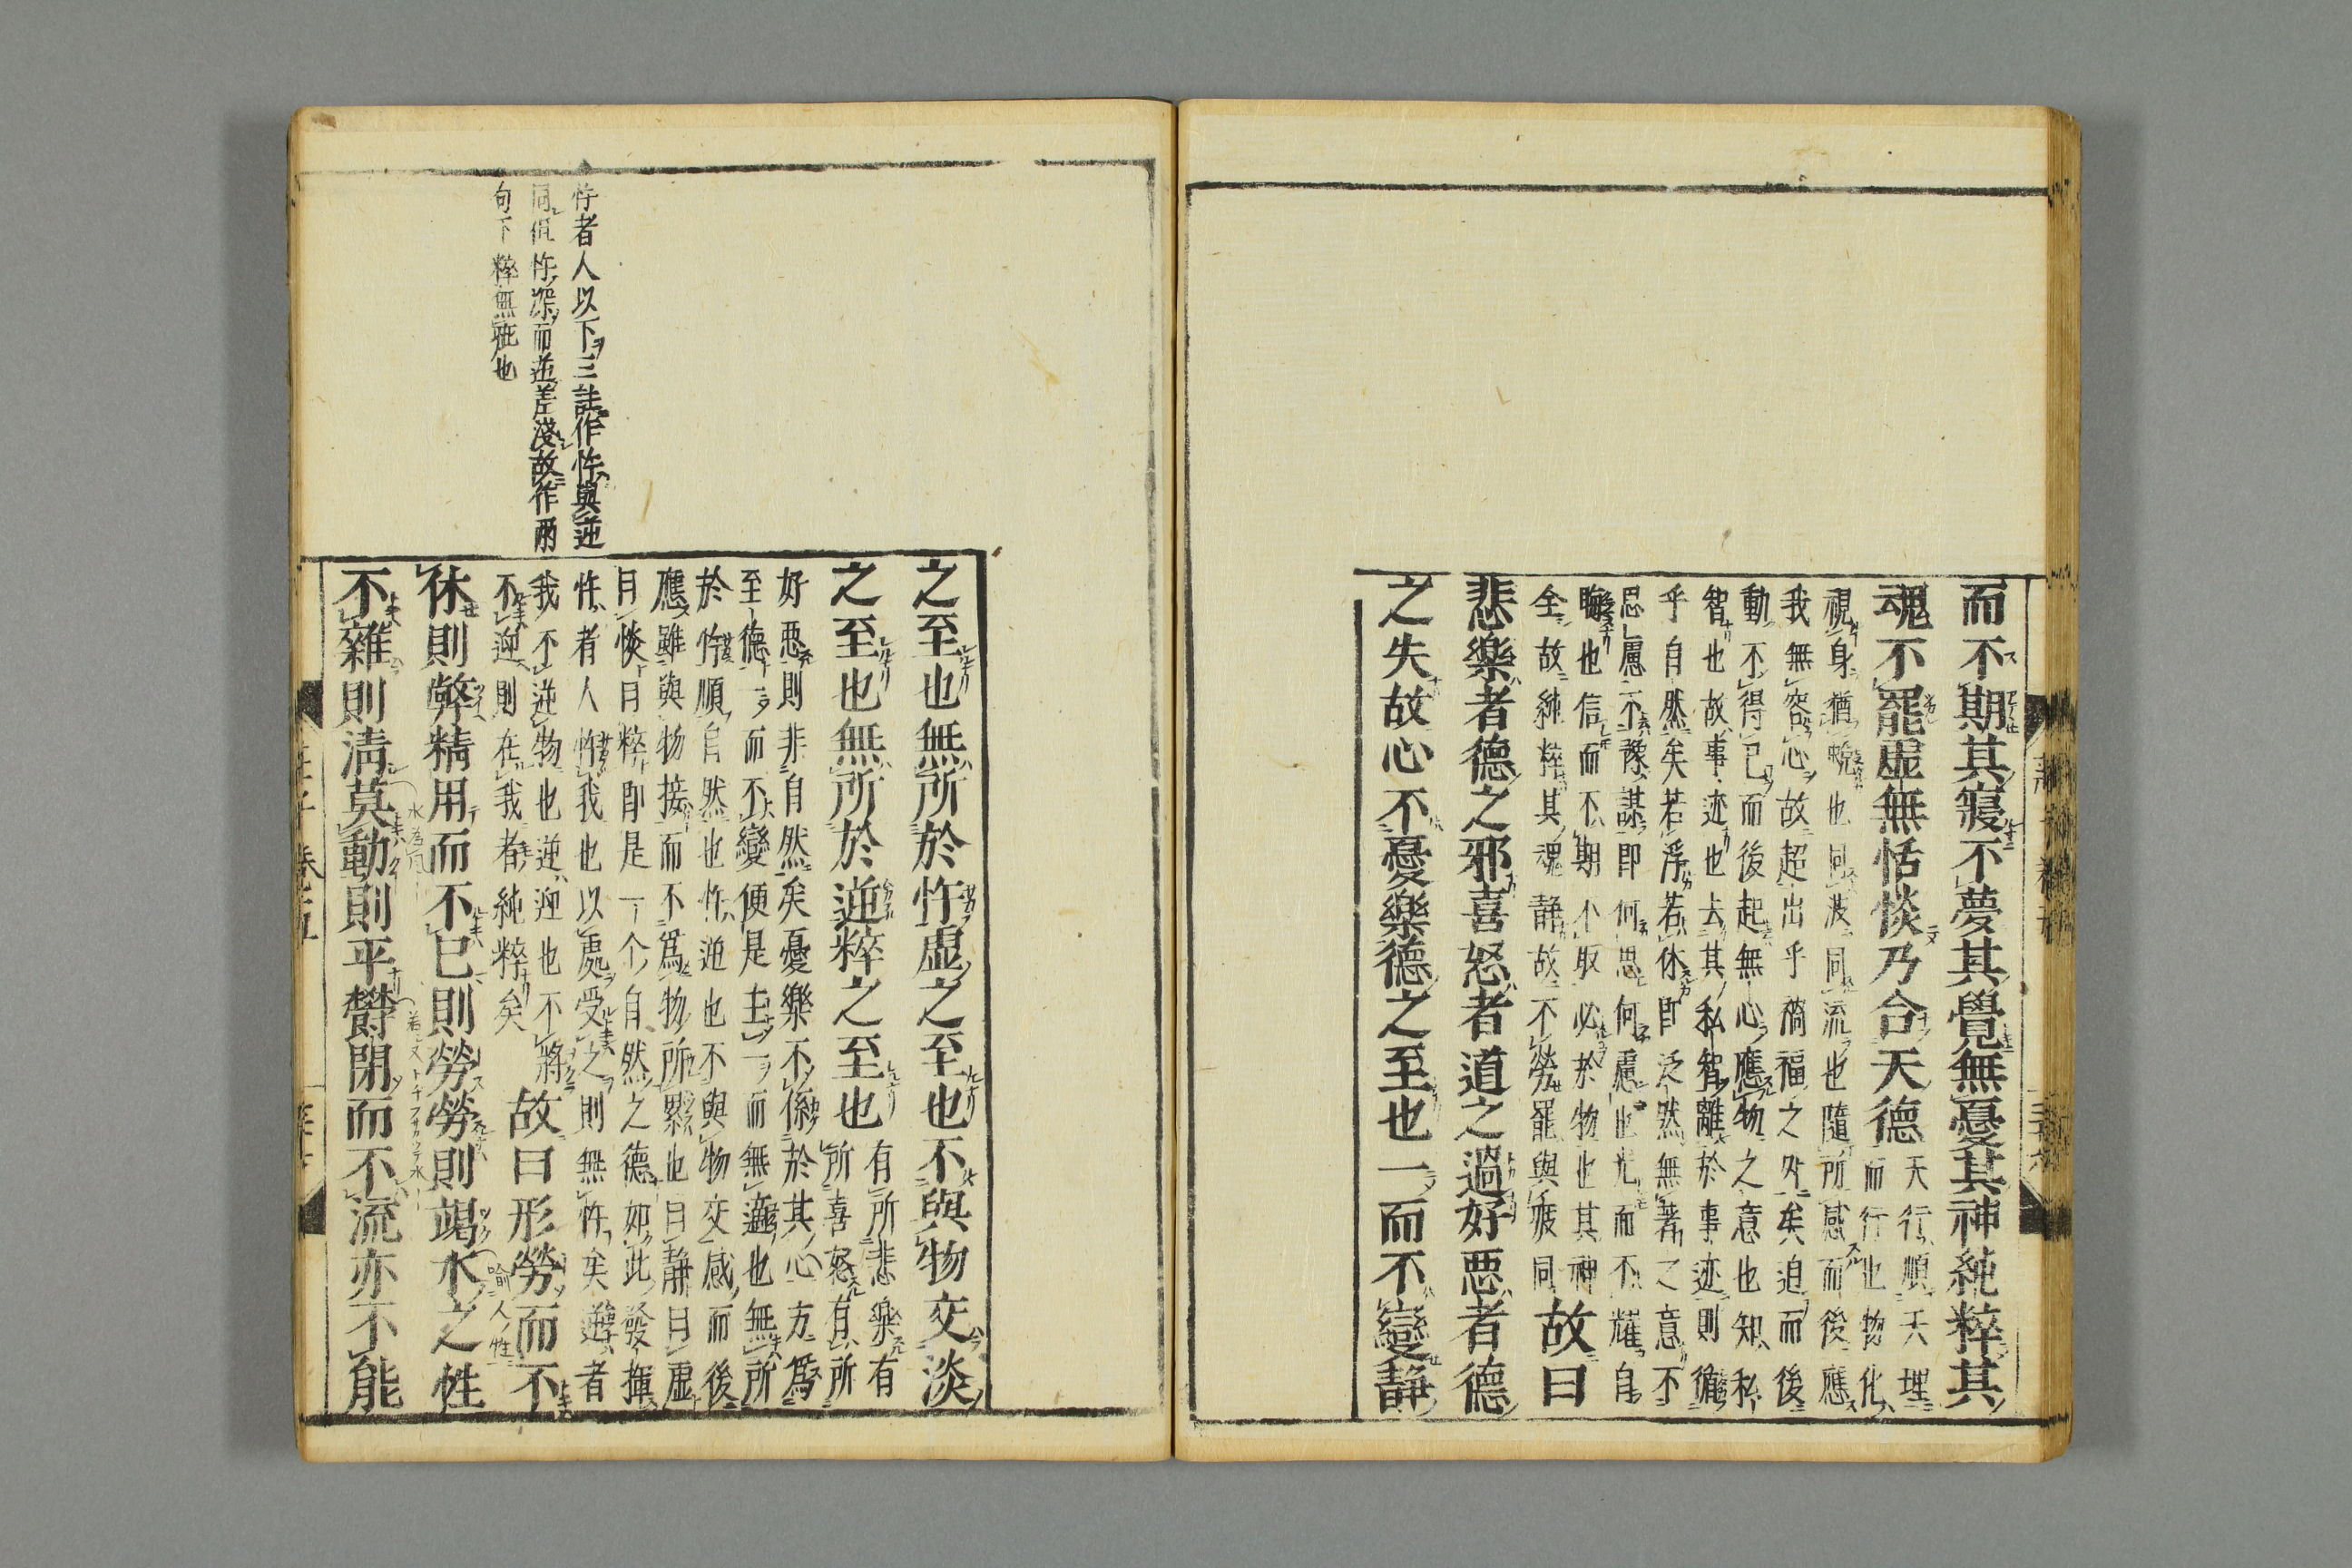 而不期其寢不夢其覺無憂其神純粹其
魂不罷虛無恬惔乃合天德
天行順天理
而行也物化
視身猶蛻也同波同流也隨所感而後應
我無容心故超出乎禍福之外矣迫而後
動不得已而後起無心應物之意也知私
智也故事迹也去其私智離於事迹則循
乎自然矣若浮若休即泛然無著之意不
思慮不豫謀即何思何慮也光而不耀自
晦也信而不期不取必於物也其神
全故純粹其魂靜故不勞罷與疲同
故曰
悲樂者德之邪喜怒者道之過好惡者德
之失故心不憂樂德之至也一而不變靜
之至也無所於忤虛之至也不與物交淡
之至也無所於逆粹之至也
有所悲樂有
所喜怒有所
好惡則非自然矣憂樂不係於其心方爲
至德一而不變便是主一而無適也無所
於忤順自然也忤逆也不與物交感而後
應雖與物接而不爲物所累也曰靜曰虛
曰惔曰粹即是一个自然之德如此發揮
忤者人忤我也以處受之則無忤矣逆者
我不逆物也逆迎也不將
不迎則在我者純粹矣
故曰形勞而不
休則弊精用而不已則勞勞則竭水之性
不雜則清莫動則平鬱閉而不流亦不能
忤者人以下三註作忤與逆
同但忤深而逆差淺故作兩
句下粹無疵也